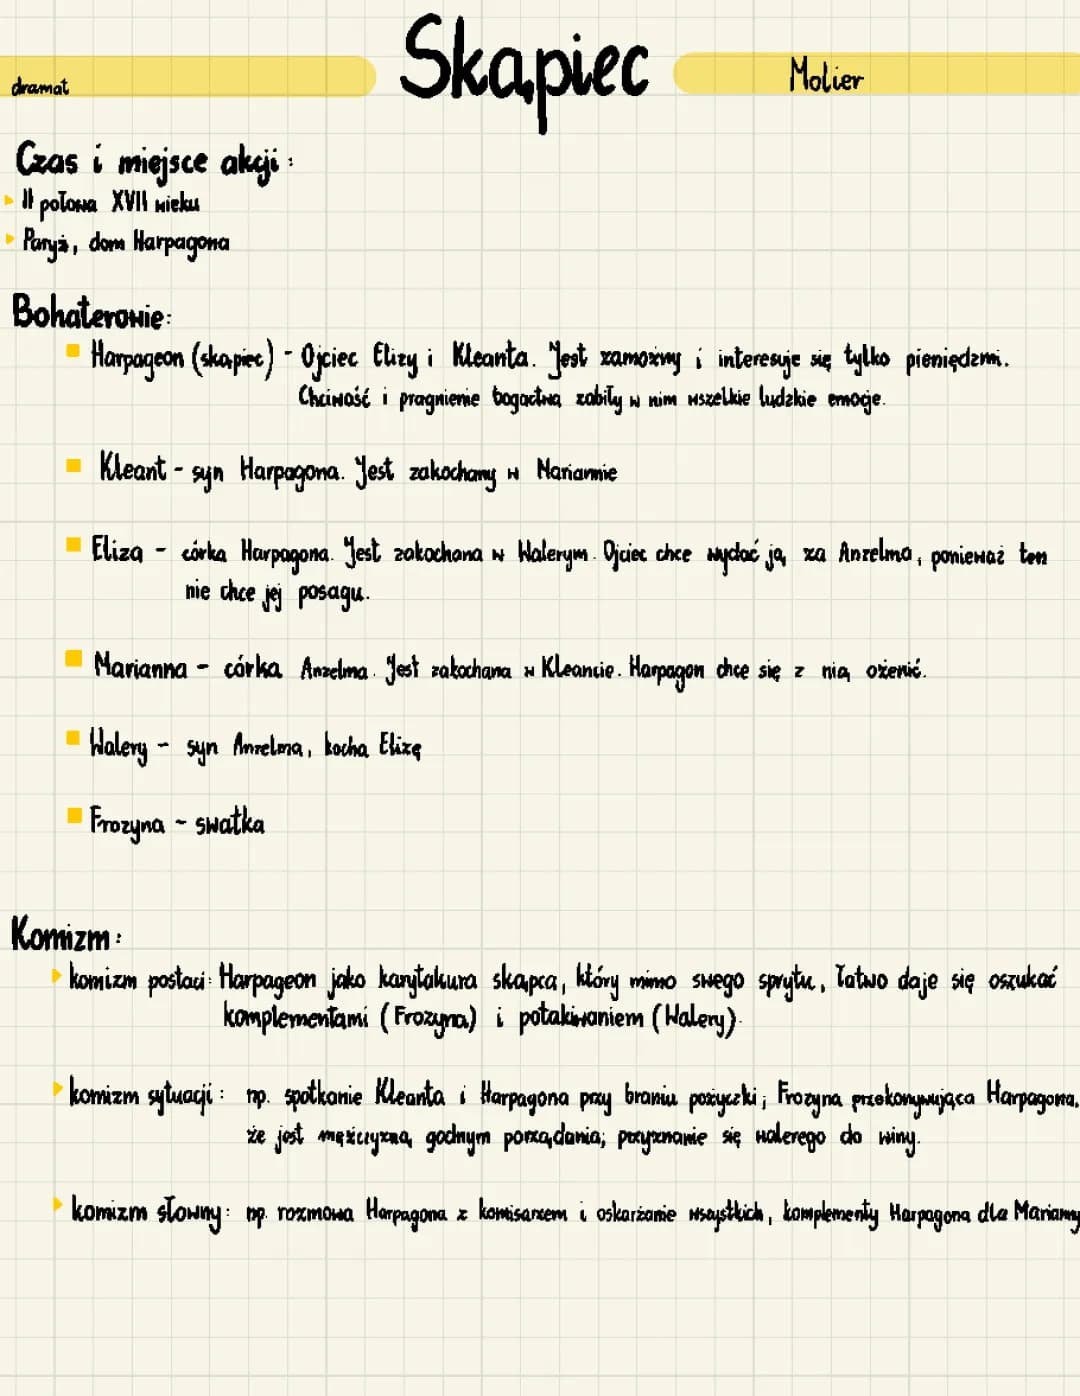 Skąpiec
dramat
Molier
Czas i miejsce akcji:
II połowa XVII wieku
Paryż, dom Harpagona
Bohaterowie:
Harpageon (skąpiec) - Ojciec Elizy i Kleanta. Jest zamożny i interesuje się tylko pieniędzmi.
Chciwość i pragnienie bogactwa zabiły w nim wszelkie ludzkie emocje.
Kleant - syn Harpagona. Jest zakochany w Mariannie
Eliza - córka Harpagona. Jest zakochana w Walerym. Ojciec chce wydać ją za Anzelma, ponieważ ten
nie chce jej posagu.
Marianna - córka Anzelma. Jest zakochana w Kleancie. Harpagon chce się z nią ożenić.
Walery - syn Anzelma, kocha Elizę
Frozyna - swatka
Komizm:
komizm postaci: Harpageon jako karytakura skąpca, który mimo swego sprytu, łatwo daje się oszukać
komplementami (Frozyna) i potakiwaniem (Walery).
komizm sytuacji: np. spotkanie Kleanta i Harpagona przy braniu pożyczki; Frozyna przekonywująca Harpagona,
że jest mężczyzną godnym porządania; przyznanie się walerego do winy.
komizm słowny: np. rozmowa Harpagona z komisarzem i oskarżanie wszystkich, komplementy Harpagona dla Marianny